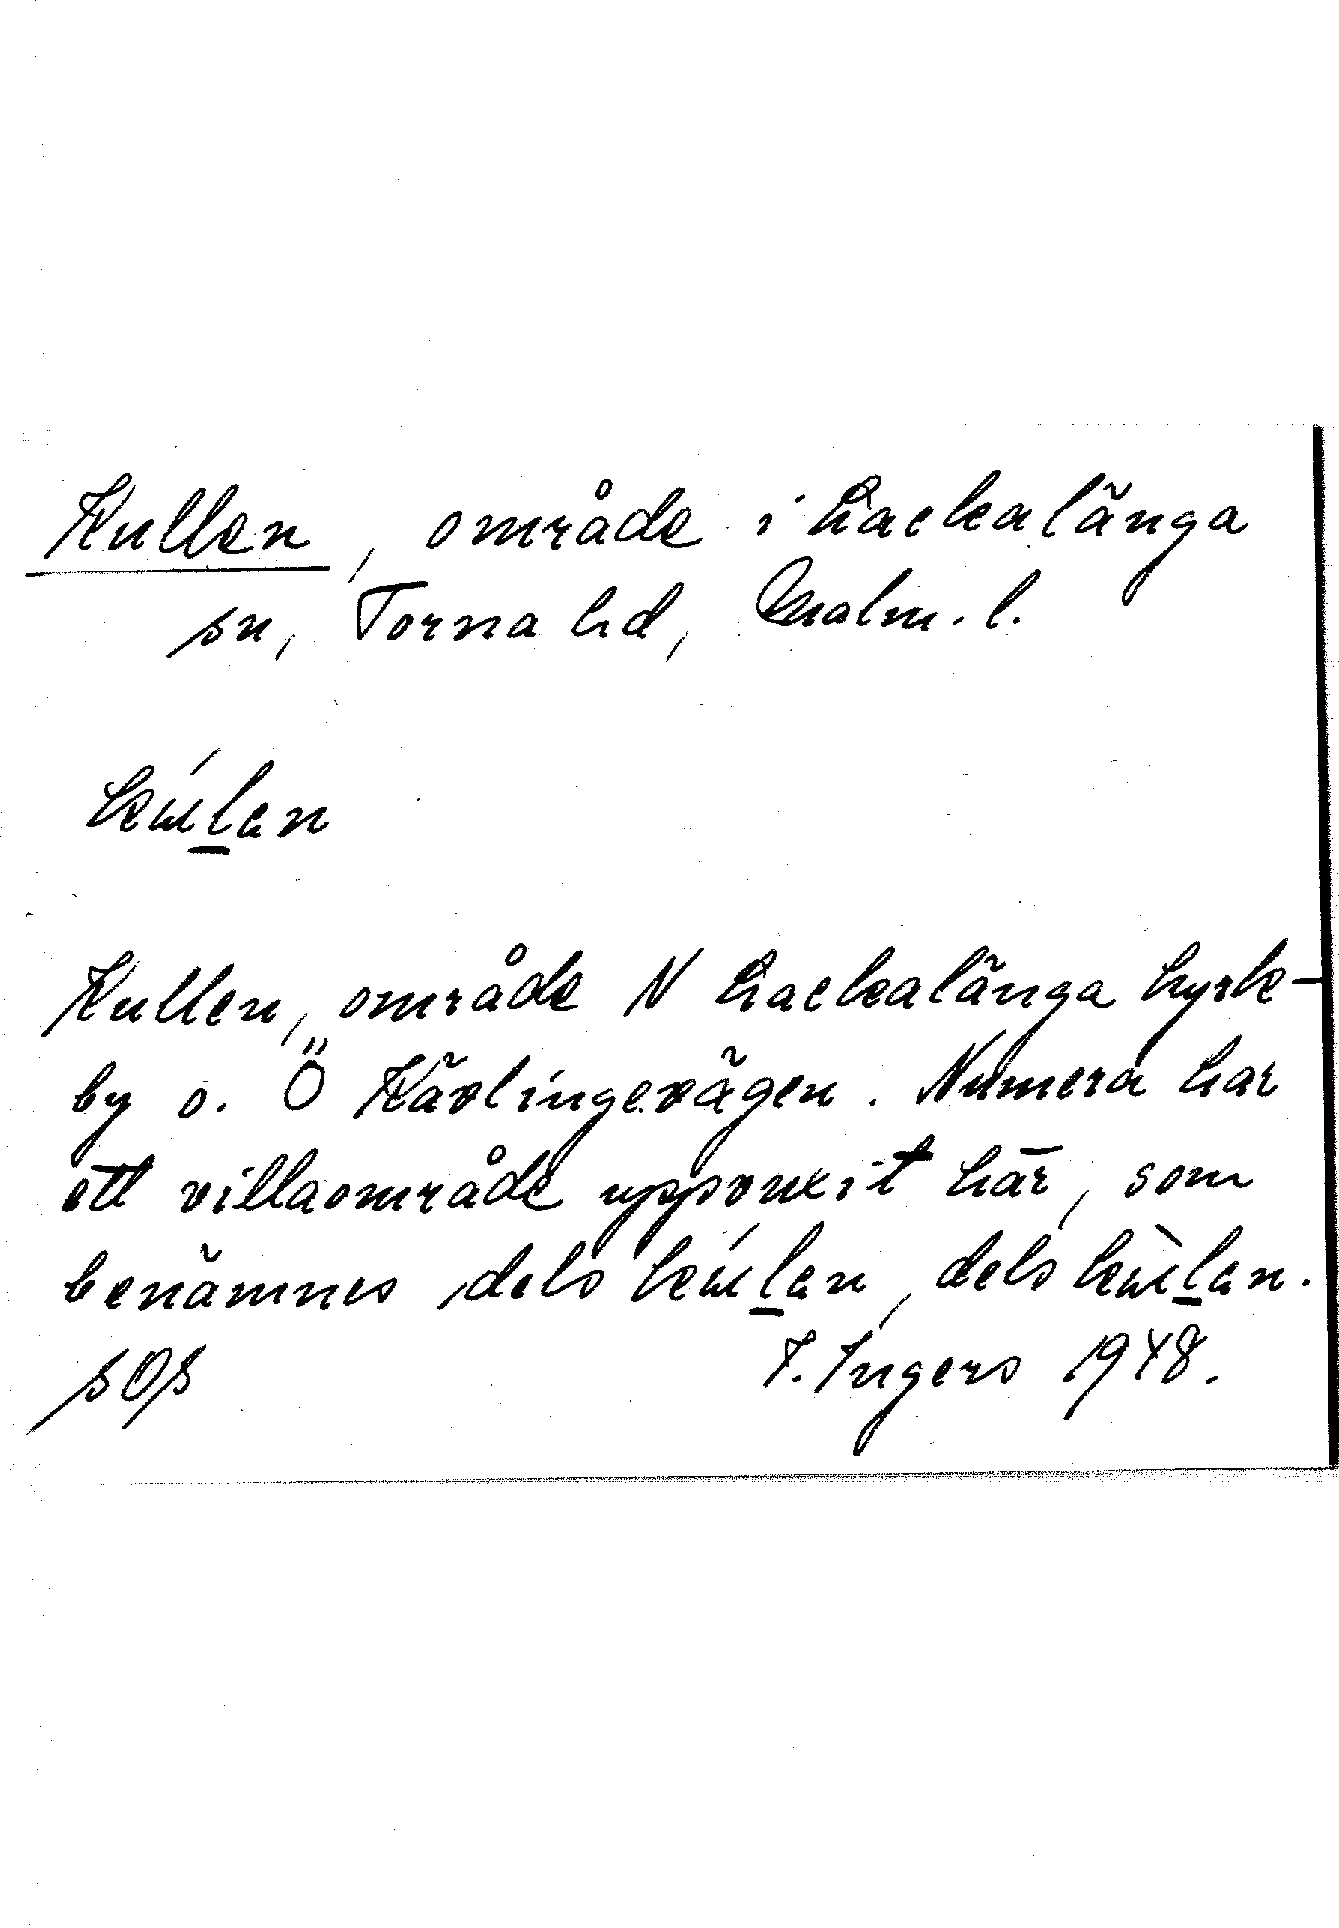 Kullen, område i Lackalänga
sn, Torna hd, Malm. l.
Kullen, område N Lackalänga kyrk-
by o. Ö Kävlingevägen. Numera har
ett villaområde uppvuxit här, som
benämnes dels , dels .
SOS F. Ingers 1948.